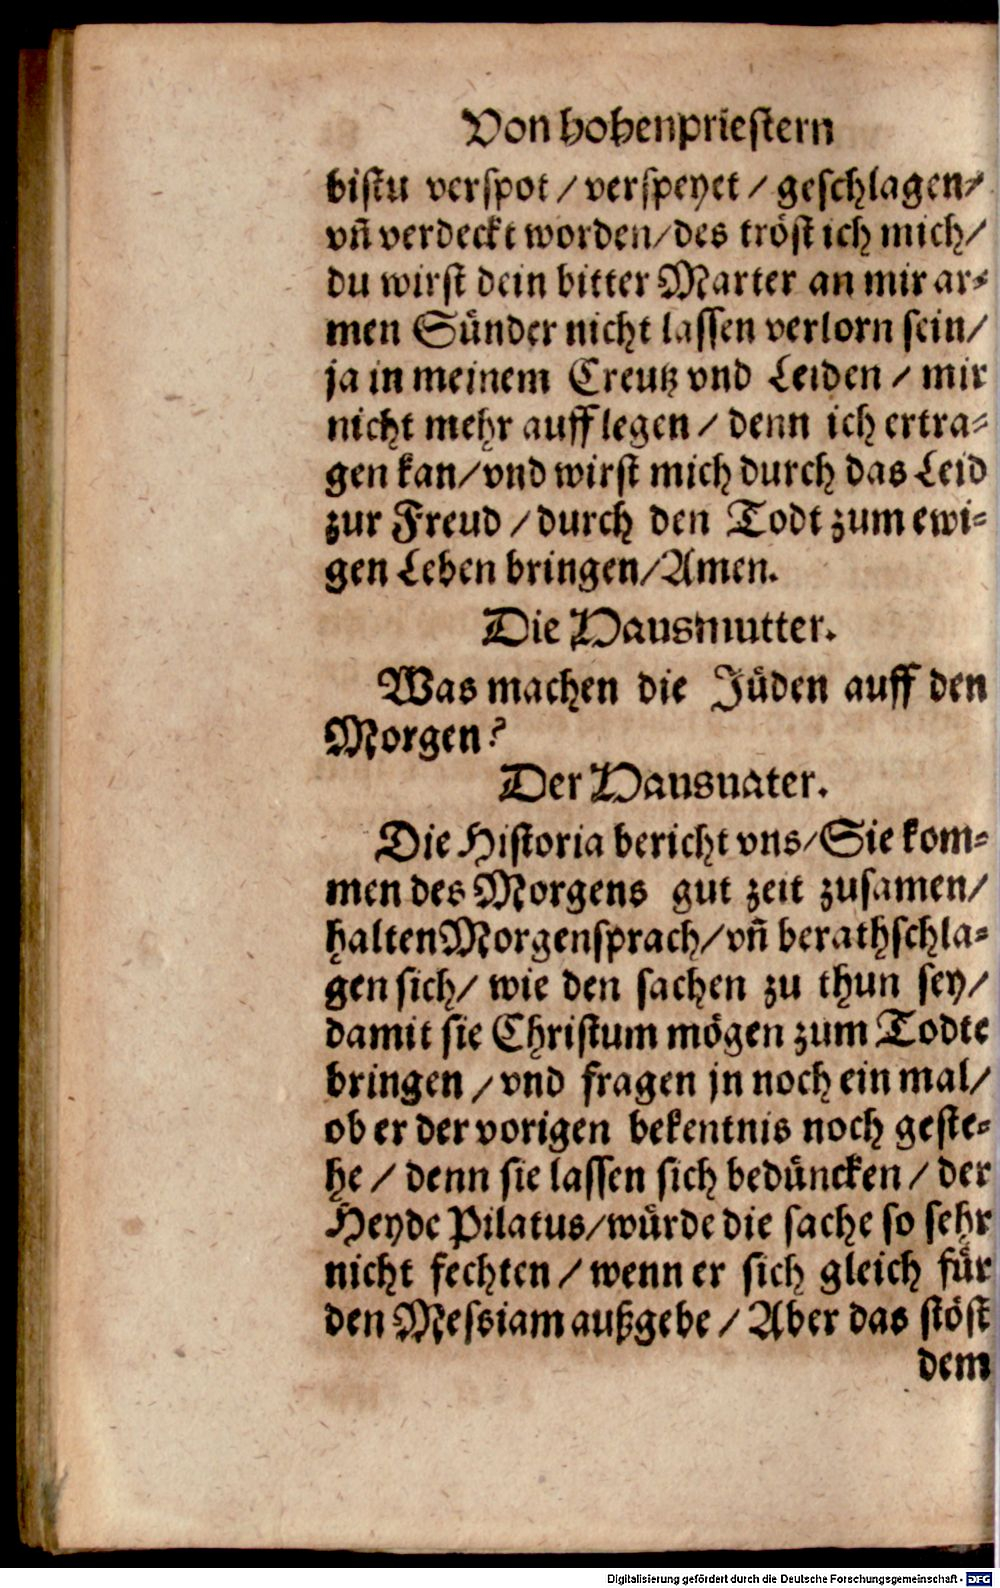 Von hohenpriestern
bistu verspot / verspeyet / geschlagen /
vñ verdeckt worden / des tröst ich mich /
du wirst dein bitter Marter an mir ar-
men Sünder nicht lassen verlorn sein /
ja in meinem Creutz vnd Leiden / mir
nicht mehr auff legen / denn ich ertra-
gen kan / vnd wirst mich durch das Leid
zur Freud / durch den Todt zum ewi-
gen Leben bringen / Amen.
Die Hausmutter.
Was machen die Jüden auff den
Morgen?
Der Hausuater.
Die Historia bericht vns / Sie kom-
men des Morgens gut zeit zusamen /
halten Morgensprach / vñ berathschla-
gen sich / wie den sachen zu thun sey /
damit sie Christum mögen zum Todte
bringen / vnd fragen jn noch ein mal /
ob er der vorigen bekentnis noch geste-
he / denn sie lassen sich bedüncken / der
Heyde Pilatus / würde die sache so sehr
nicht fechten / wenn er sich gleich für
den Messiam außgebe / Aber das stöst
dem
Digitalisierung gefördert durch die Deutsche Forschungsgemeinschaft - DFG